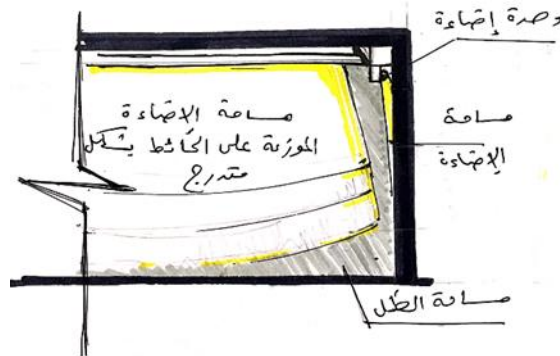 وحدة إضاءة
مساحة الاضاءة
الموزعة على الحائط بشكل
متدرج
مساحة
الإضاءة
مساحة الظل